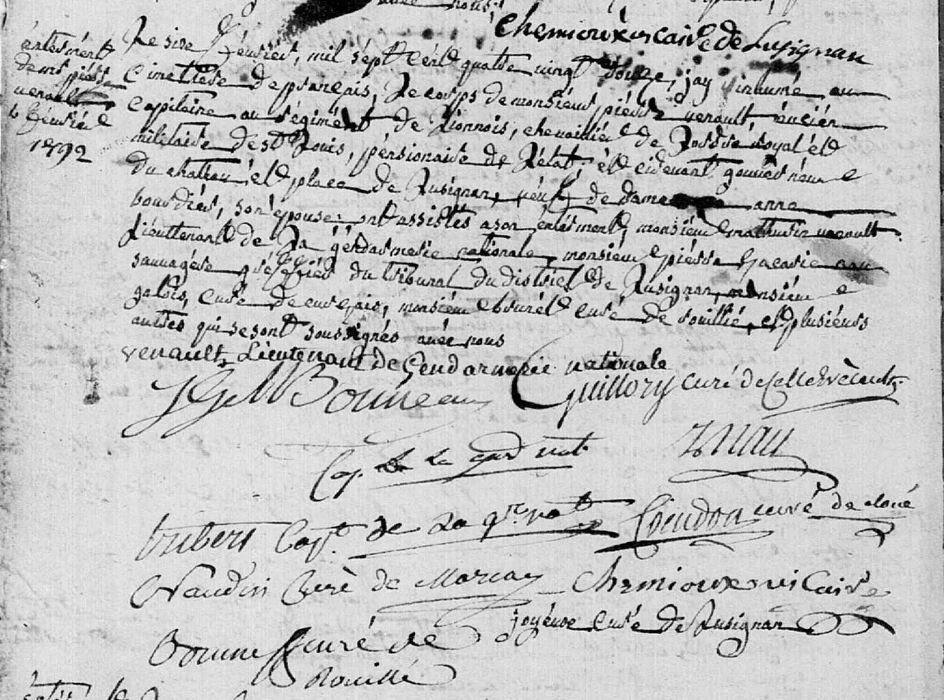 avec nous
chemioux vicaire de Lusignan
enterrement
de mr pierre
venault
6 fevrier
1792
Le six fevrier, mil sept cent quatre vingt douze, jay inhumé au
cimetiere de la Paroisse, le corps de monsieur pierre venault, ancien
capitaine au régiment de Lionnois, chevallier de L'ordre Royal et
militaire de St Louis, pensionaire de L'etat, et cidevant gouverneur
du chateau et place de Lusignan, de dame anne
bourdier, son epouse: ont assistés a son enterrement, monsieur mathurin venault
Lieuttenant de La gendarmerie nationale, monsieur pierre
sauvagere greffier du tribunal du district de Lusignan, monsieur
curé de monsieur curé de rouillé, et plusieurs
autres qui se sont soussignés avec nous
venault Lieutenant de Gendarmerie nationale
Bonneau Guillory curé de Celle Levécault
Cap. de la gard nat.
hubert Capt. de La gde nat. curé de cloué
Naudin Curé de Marcay chemioux vicaire
joyeux curé de Lusignan
curé de
Rouillé